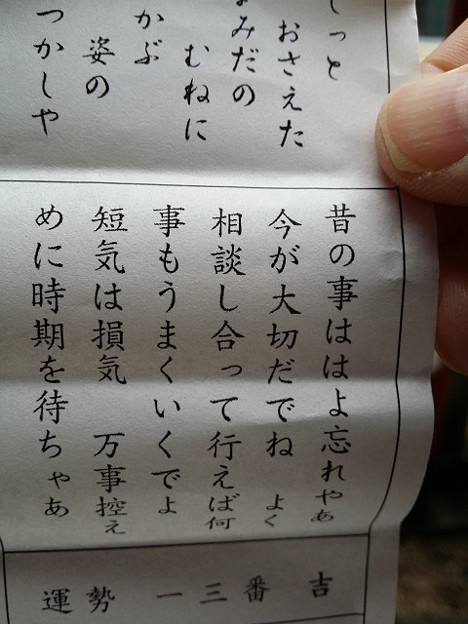 っと
おさえた
みだの
むねに
かぶ
姿の
つかしや
昔の事ははよ忘れやあ
今が大切だでね よく
相談し合って行えば何
事もうまくいくでよ
短気は損気 万事控え
めに時期を待ちゃあ
運勢 一三番 吉